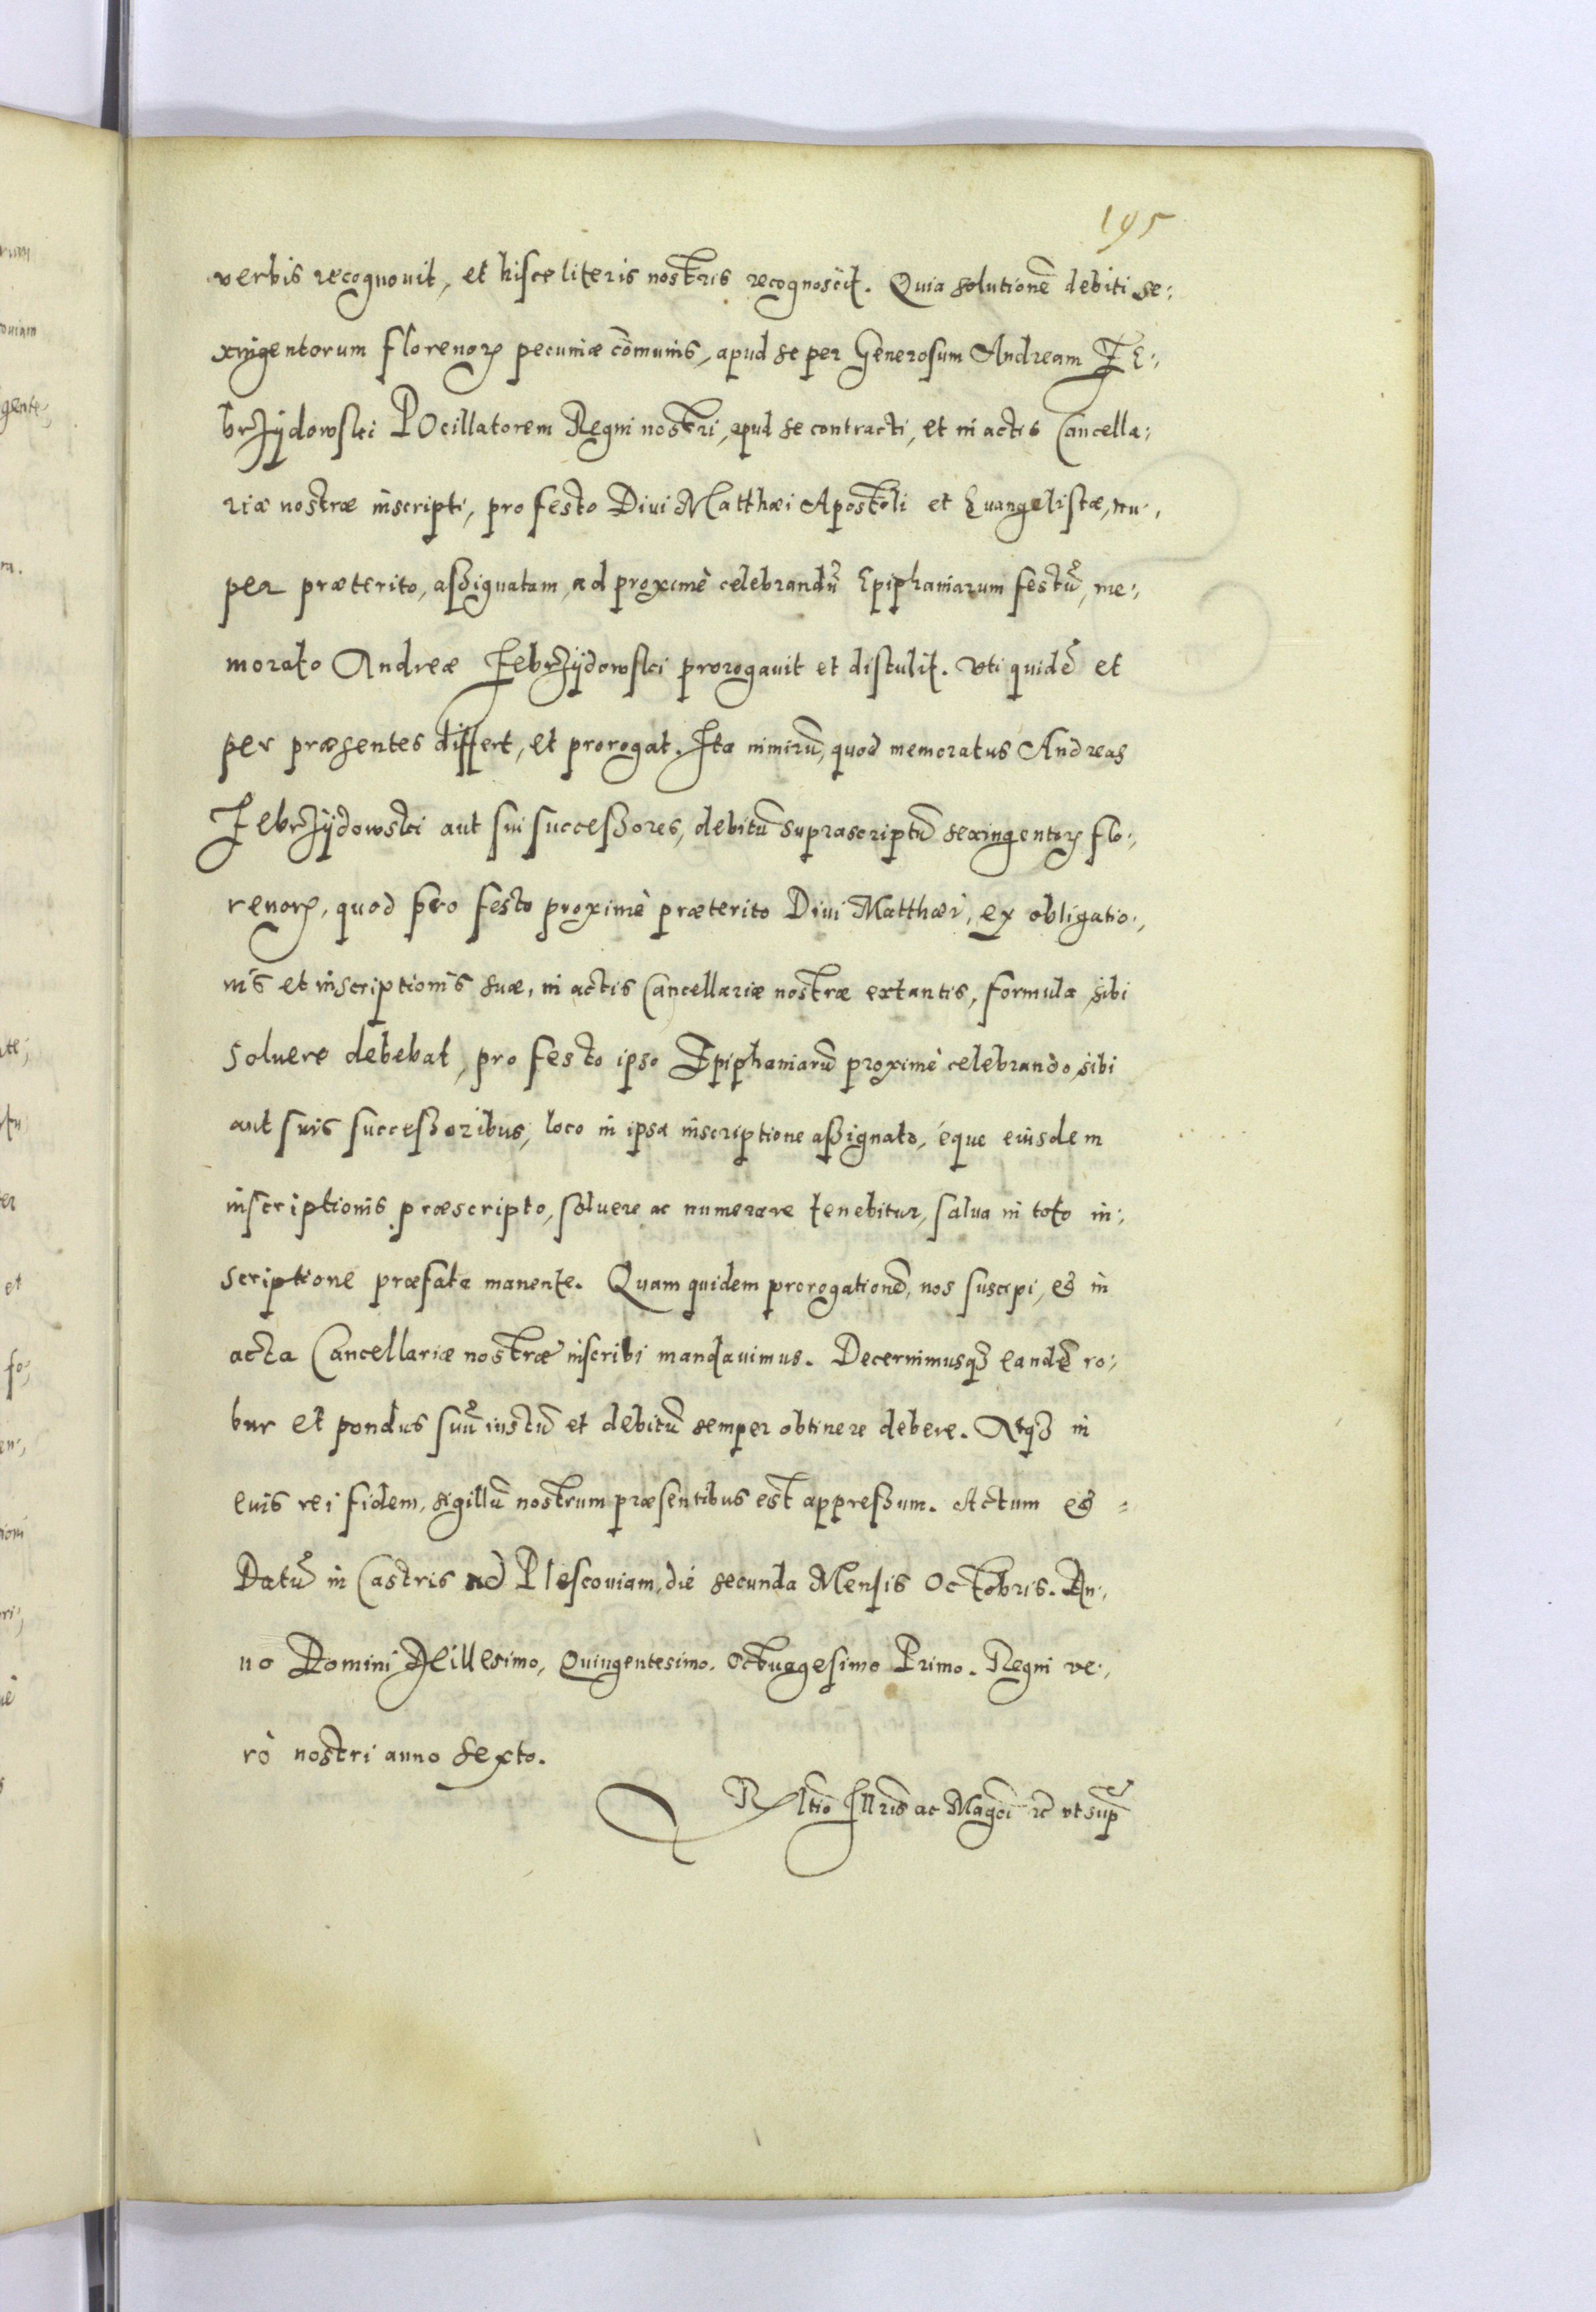 195
verbis recognouit, et hisce literis nostris recognoscit. Quia solutionē debiti se:
xingentorum florenorꝫ pecuniæ cōmunis, apud se per Generosum Andream Ze:
brzÿdowski POcillatorem Regni nostri, apud se contracti, et in actis Cancella:
riæ nostræ inscripti, pro festo Diui Matthæi Apostoli et Euangelistæ, nu:
per præterito, aßignatam, ad proximè celebrandū Epiphaniarum festū, me:
morato Andreæ Zebrzÿdowski prorogauit et distulit. Vti quidē et
per præsentes differt, et prorogat. Ita nimirū, quod memoratus Andreas
Zebrzÿdowski aut sui succeßores, debitū suprascriptū sexingentorꝫ flo:
renorꝫ, quod pro festo proximè præterito Diui Matthæi, ex obligatio:
nis et inscriptionis suæ, in actis Cancellariæ nostræ extantis, formula sibi
soluere debebat, pro festo ipso Epiphaniarū proximè celebrando, sibi
aut suis succeßoribus, loco in ipsa inscriptione aßignato, éque eiusdem
inscriptionis præscripto, soluere ac numerare tenebitur, salua in toto in:
scriptione præfata manente. Quam quidem prorogationē, nos suscipi, et in
acta Cancellariæ nostræ inscribi mandauimus. Decernimusqꝫ eandē ro:
bur et pondus suū iustū et debitū semper obtinere debere. Atqꝫ in
euis rei fidem, sigillū nostrum præsentibus est appreßum. Actum et
Datū in Castris ad Plescouiam, die secunda Mensis Octobris. An:
no Domini Millesimo, Quingentesimo. Octuagesimo Primo. Regni ve:
rò nostri anno sexto.
Rltio Illris ac Magci ꝛc vt sup